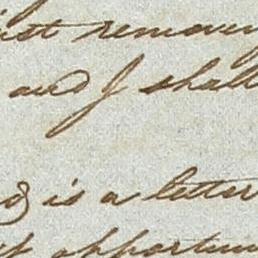 just remov
and I shall
is a letter
opportun